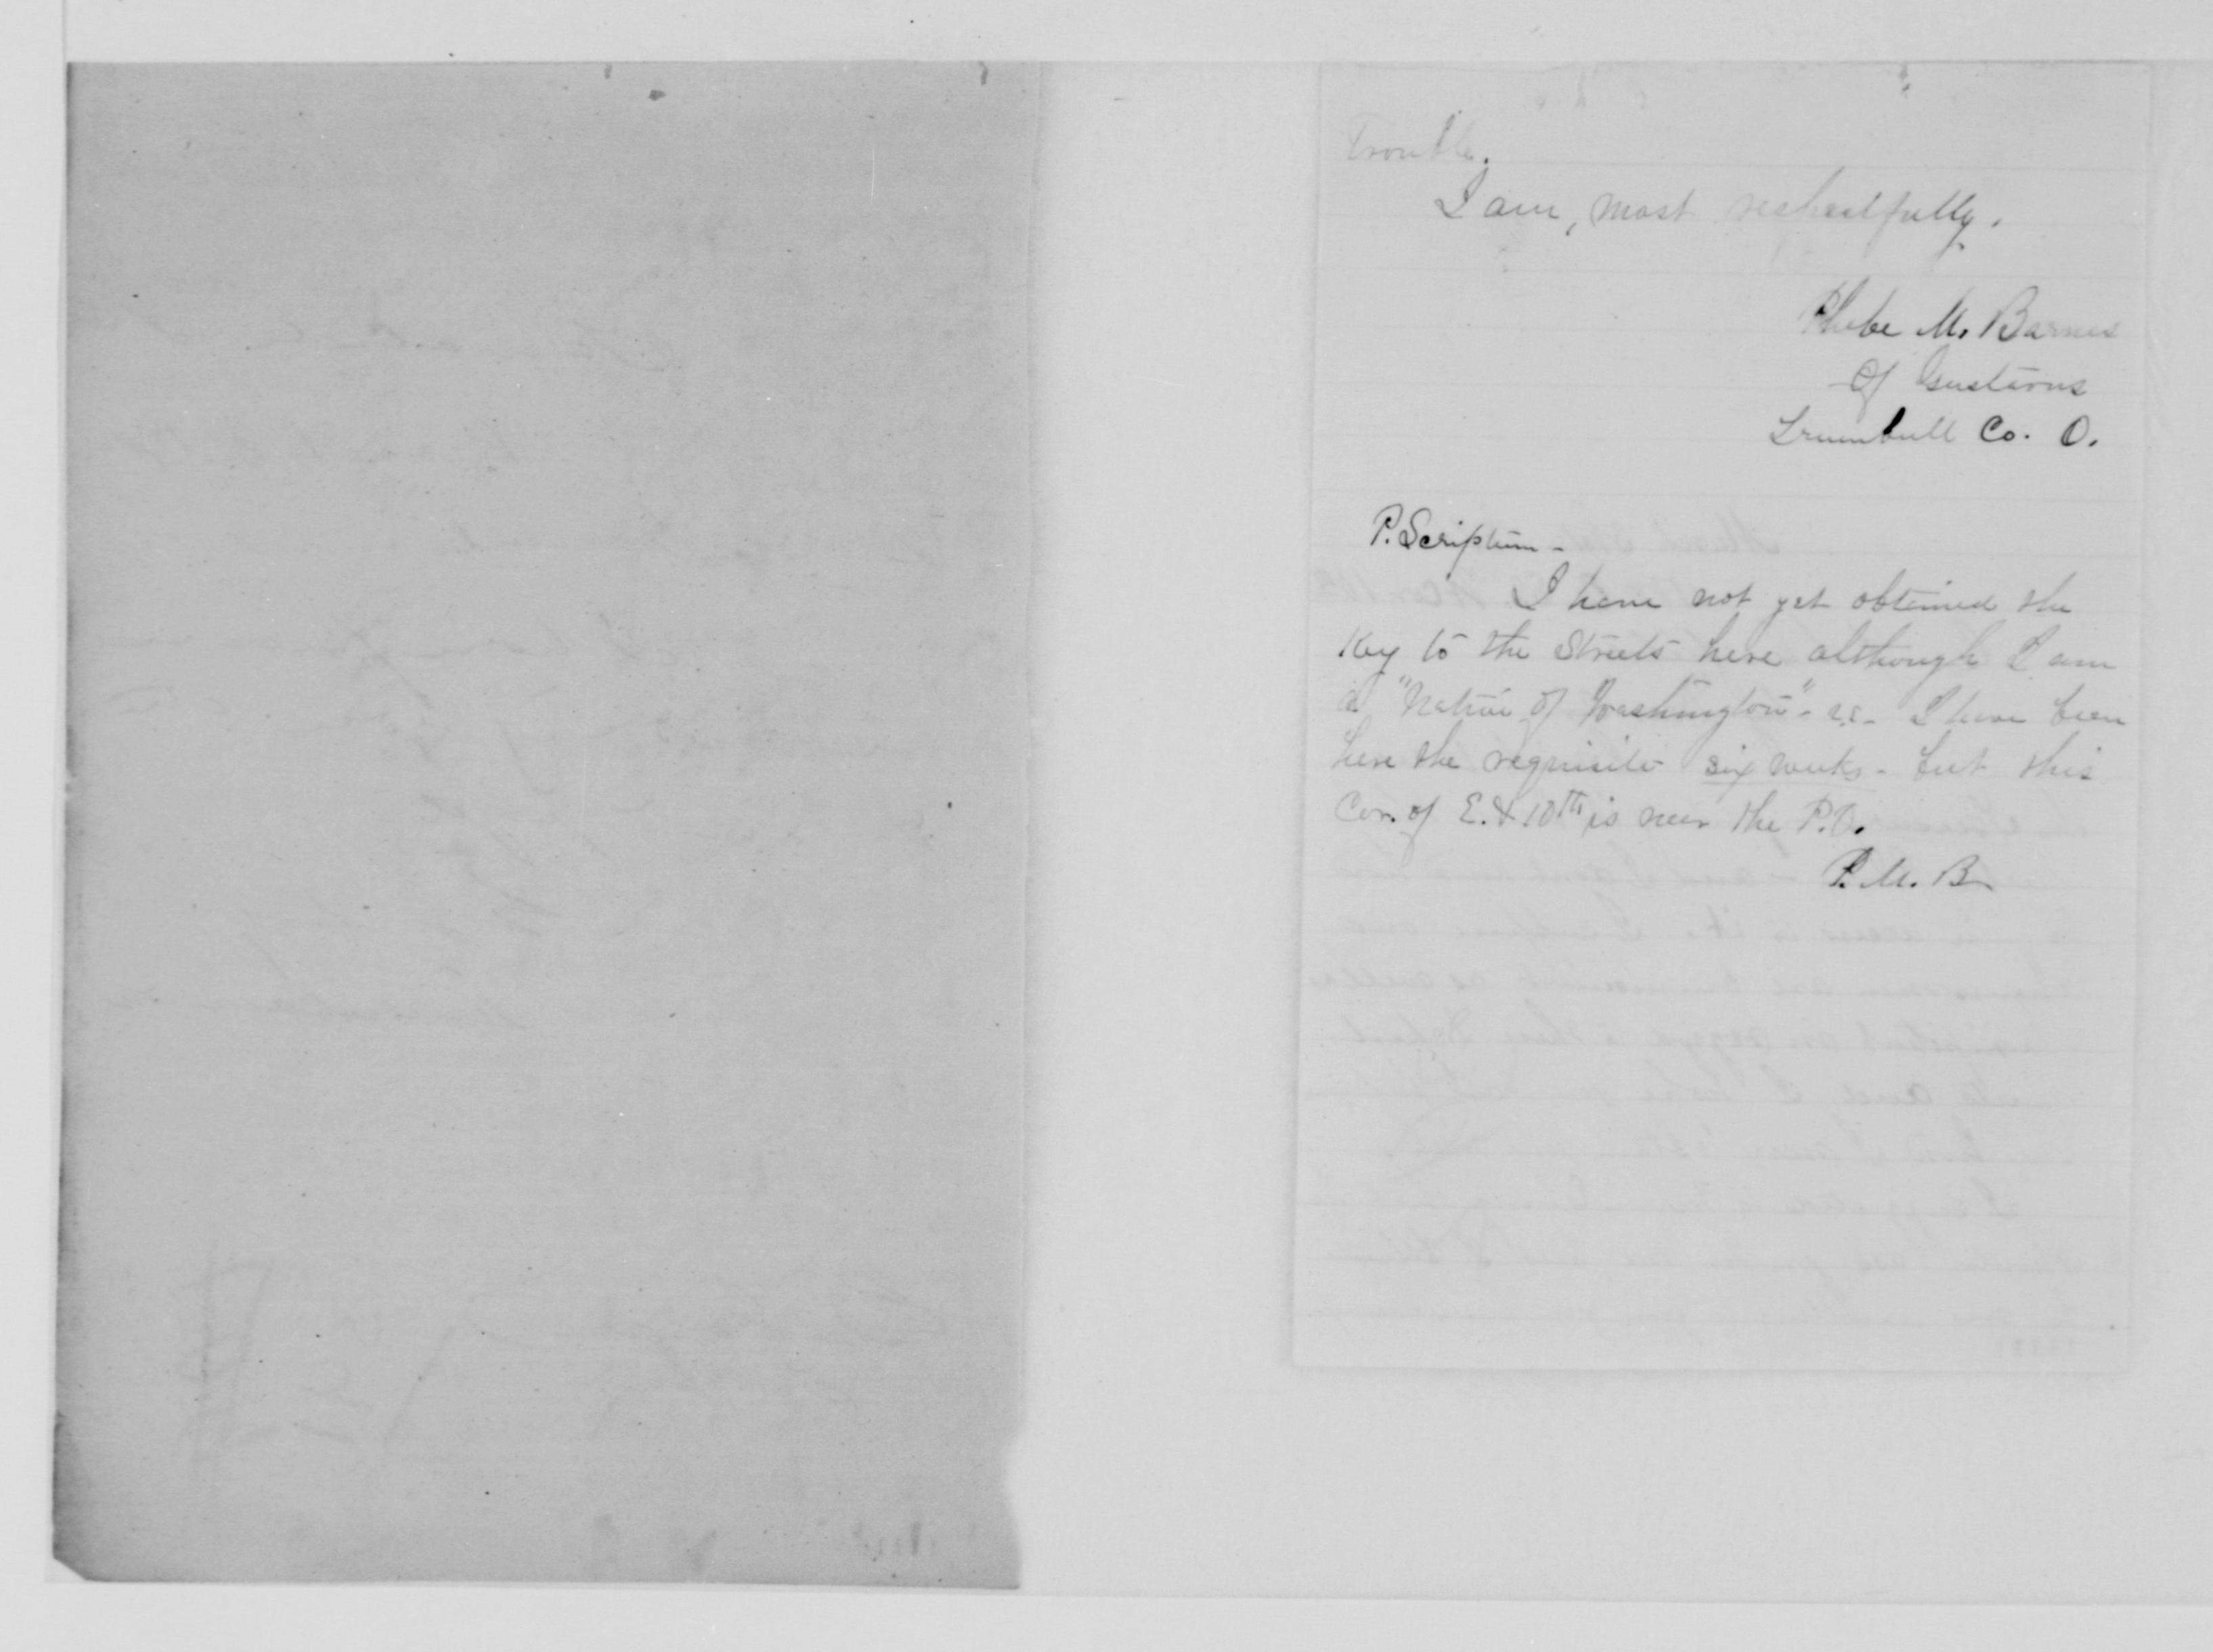 Trouble.
I am, most respectfully.
Phebe M. Barnes
Of Gustavus
Trumbull Co. O.
P. Scriptum -
I have not yet obtained the
Key to the Streets here although I am
a "Native of Washington" - I have been
here the requisite six weeks - but this
Cor. of E. & 10th is near the P.O.
P. M. B.